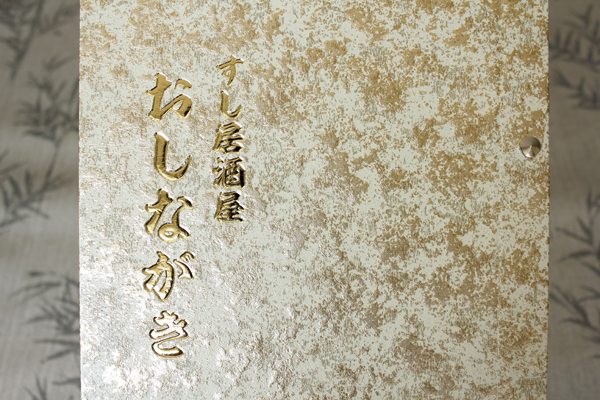 すし居酒屋
おしながき